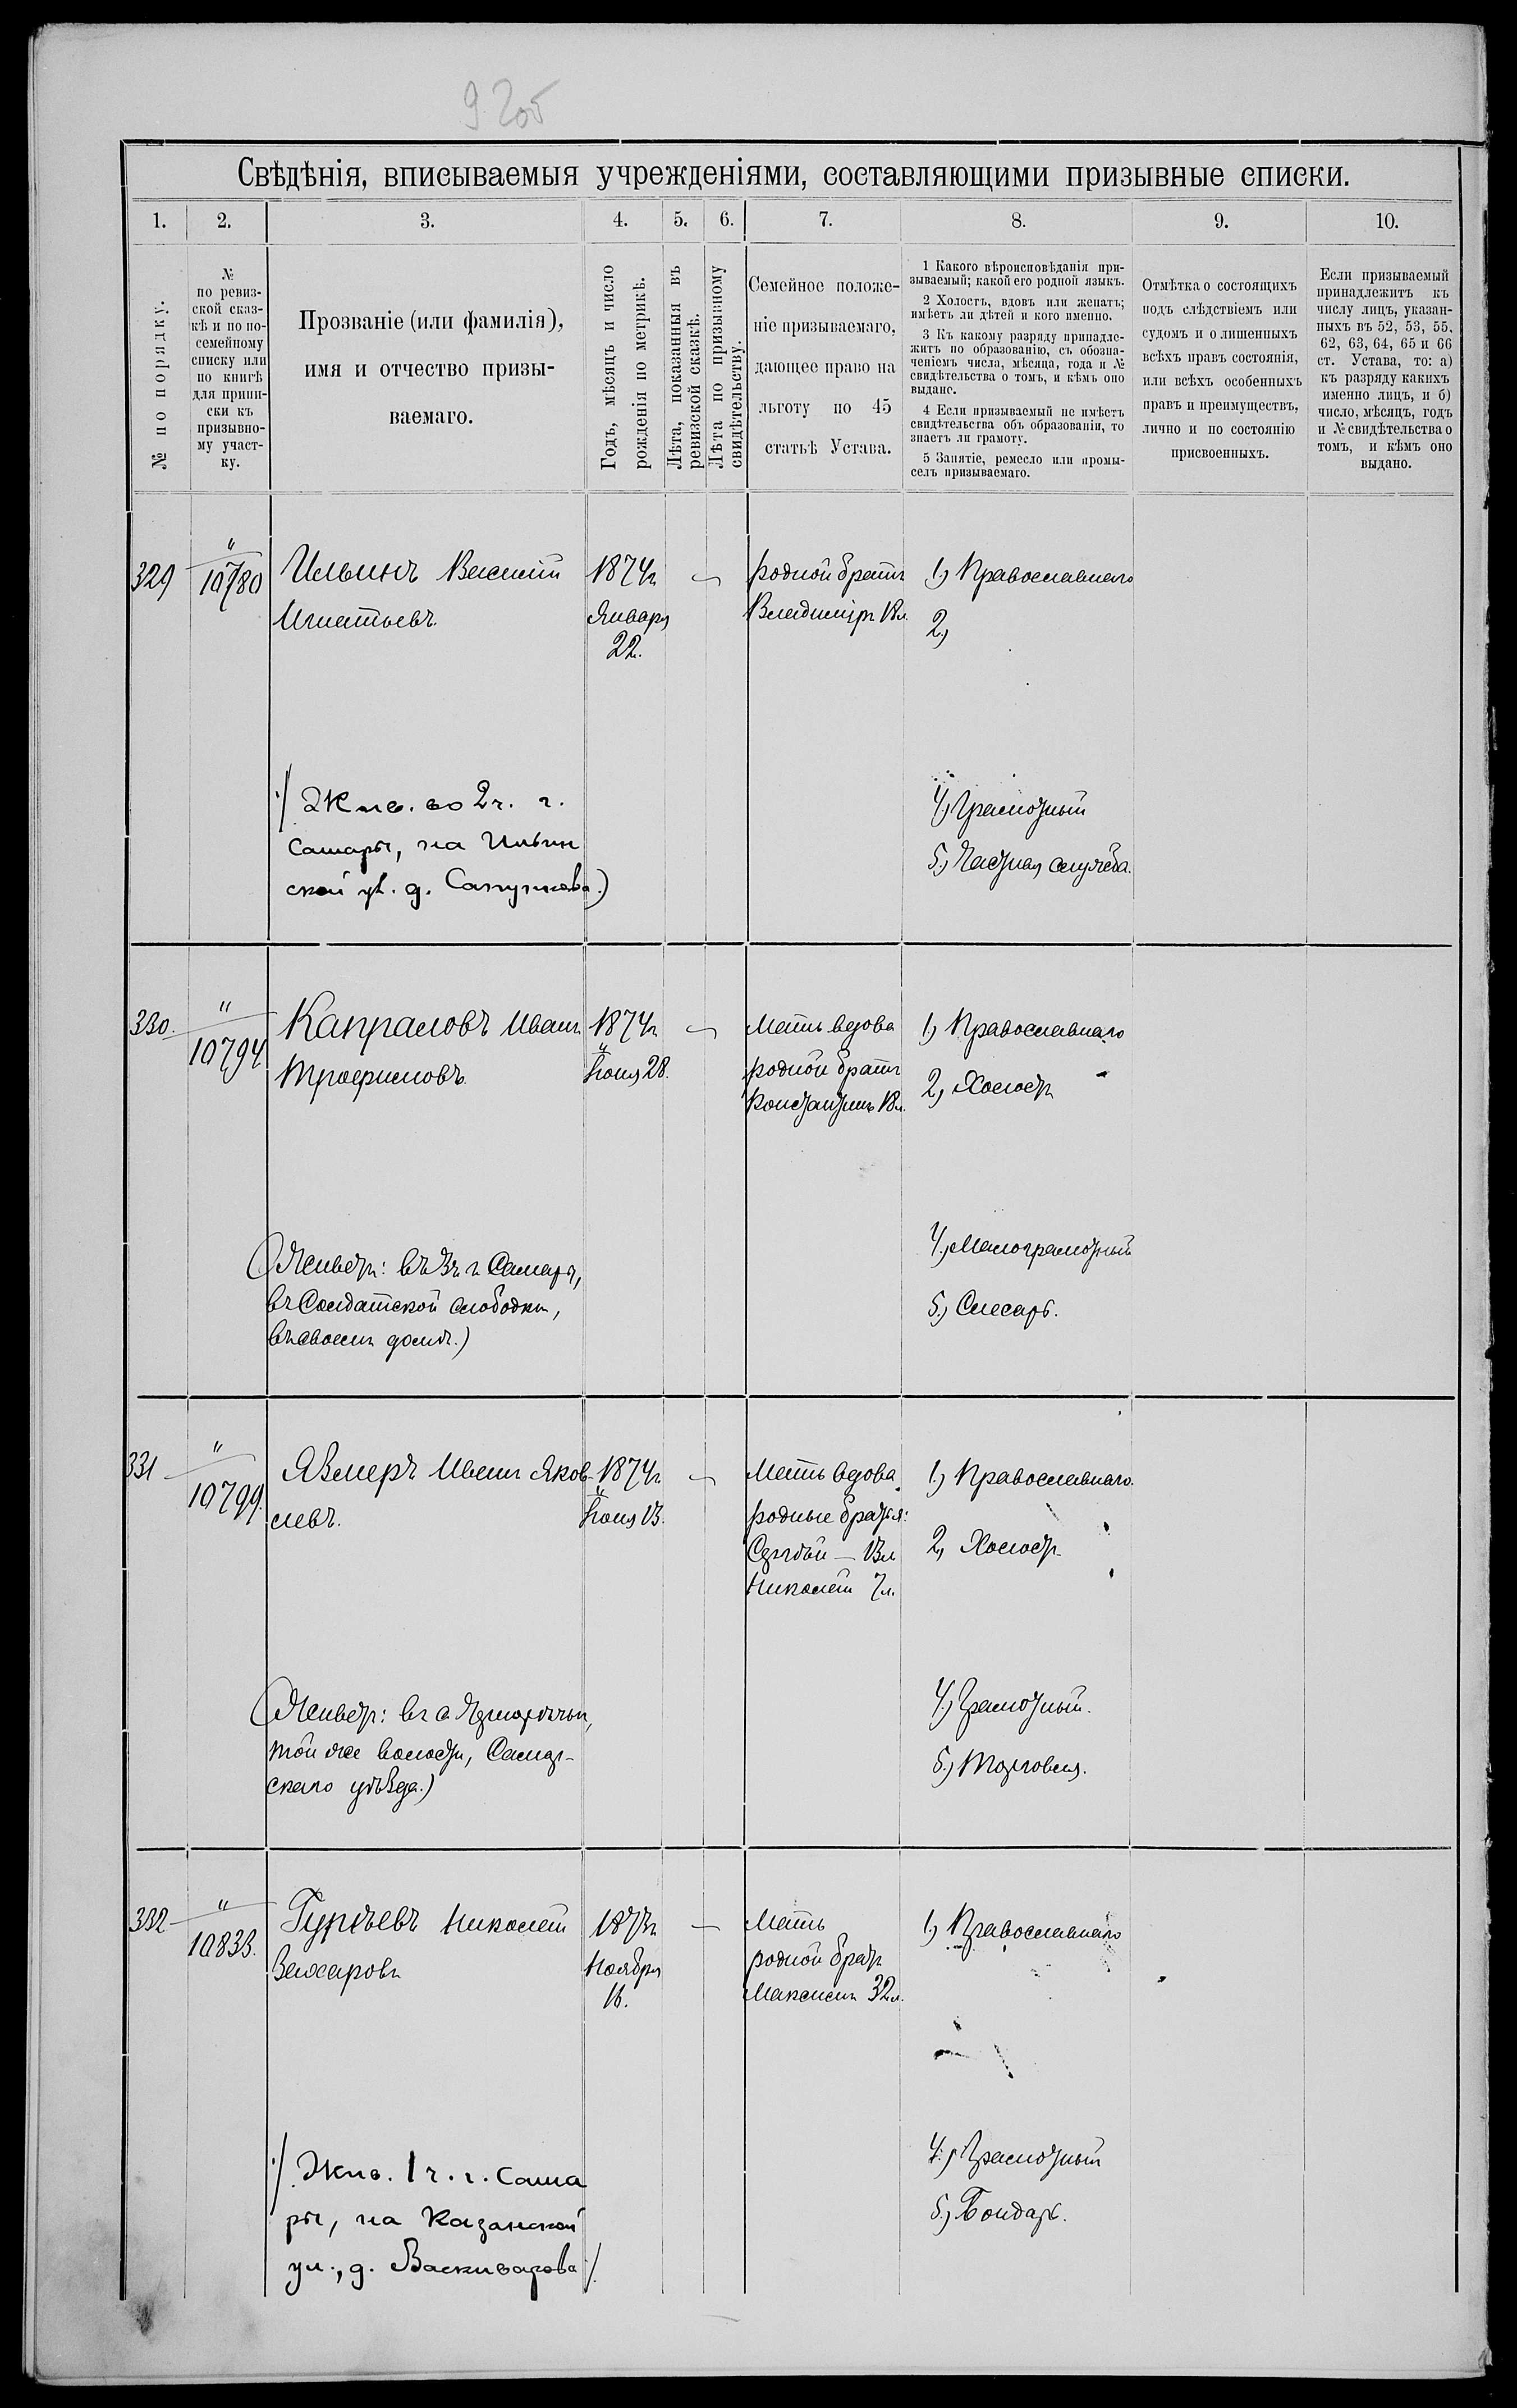 9 205
Свѣдѣнія, вписываемыя учрежденіями, составляющими призывные списки.
1. 2. 3. 4. 5. 6. 7. 8. 9. 10.
№ по порядку.
№
по ревиз-
ской сказ-
кѣ и по по-
семейному
списку или
по книгѣ
для припи-
ски къ
призывно-
му участ-
ку.
Прозваніе (или фамилія),
имя и отчество призы-
ваемаго.
Годъ, мѣсяцъ и число
рожденія по метрикѣ.
Лѣта, показанныя въ
ревизской сказкѣ.
Лѣта по призывному
свидѣтельству.
Семейное положе-
ніе призываемаго,
дающее право на
льготу по 45
статьѣ Устава.
1 Какого вѣроисповѣданія при-
зываемый; какой его родной языкъ.
2 Холостъ, вдовъ или женатъ;
имѣетъ ли дѣтей и кого именно.
3 Къ какому разряду принадле-
житъ по образованію, съ обозна-
ченіемъ числа, мѣсяца, года и №
свидѣтельства о томъ, и кѣмъ оно
выдано.
4 Если призываемый не имѣетъ
свидѣтельства объ образованіи, то
знаетъ ли грамоту.
5 Занятіе, ремесло или промы-
селъ призываемаго.
Отмѣтка о состоящихъ
подъ слѣдствіемъ или
судомъ и о лишенныхъ
всѣхъ правъ состоянія,
или всѣхъ особенныхъ
правъ и преимуществъ,
лично и по состоянію
присвоенныхъ.
Если призываемый
принадлежитъ къ
числу лицъ, указан-
ныхъ въ 52, 53, 55,
62, 63, 64, 65 и 66
ст. Устава, то: а)
къ разряду какихъ
именно лицъ, и б)
число, мѣсяцъ, годъ
и № свидѣтельства о
томъ, и кѣмъ оно
выдано.
329
"
10780
Ильинъ Василій
Игнатьевъ.
1874г
Января
22.
—
родной братъ
Владиміръ 18л.
1) Православнаго
2)
4) Грамотный
5) Частная служба.
/ Жив. во 2 ч. г.
Самары, на Ильин
ской ул. д. Сапункова.)
330.
"
10794.
Капраловъ Иванъ
Трофимовъ.
1874г
Іюня 28.
—
Мать вдова
родной братъ
Константинъ 18л.
1) Православнаго
2) Холостъ
4) Малограмотный
5) Слесарь.
(Живетъ: въ 3ч. г. Самары,
въ Солдатской слободкѣ,
въ своемъ домѣ.)
331
"
10799.
Язмеръ Иванъ Яков-
левъ.
1874г
Іюня 13.
—
Мать вдова
родные братья:
Сергѣй — 13л
Николай 7л.
1) Православнаго.
2) Холостъ.
4) Грамотный.
5) Торговля.
(Живетъ: въ с.
той же волости, Самар-
скаго уѣзда.)
332
"
10833.
Гурьевъ Николай
Захаровъ
1873г
Ноября
16.
—
Мать
родной братъ
Максимъ 32л.
1) Православнаго
4) Грамотный
5) Бондарь.
/ Жив. 1 ч. г. Сама
ры, на Казанской
ул., д. /